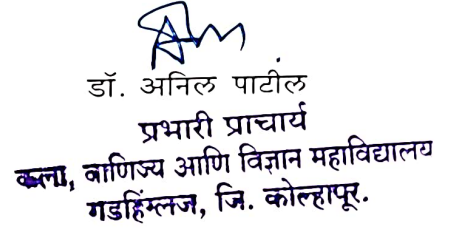 डॉ. अनिल पाटील
प्रभारी प्राचार्य
कला, वाणिज्य आणि विज्ञान महाविद्यालय
गडहिंग्लज, जि. कोल्हापूर.